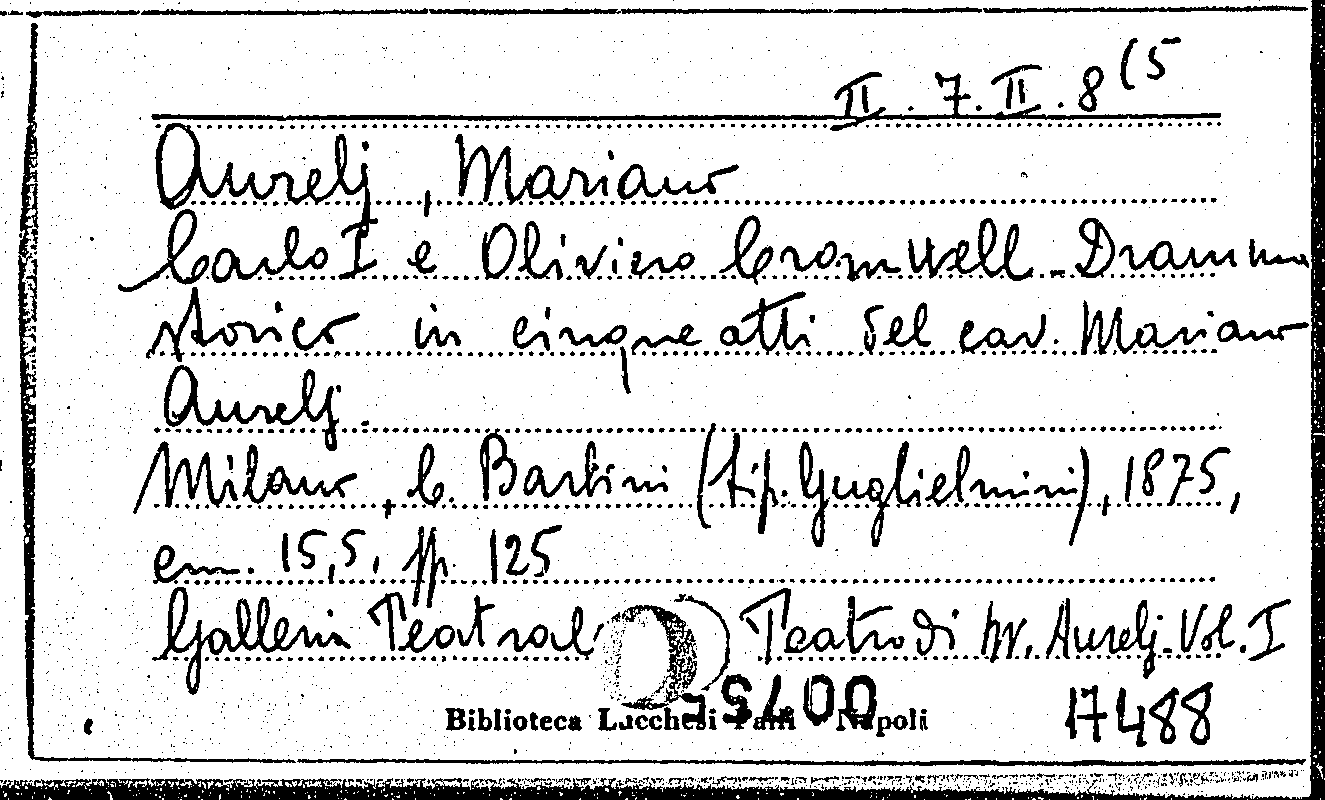 II. 7. II. 8 (5
Aurelj, Mariano
Carlo I e Oliviero Cromwell. Dramma
storico in cinque atti del cav. Mariano
Aurelj.
Milano, C. Barbini (tip. Guglielmini), 1875,
cm. 15,5, pp. 125
Galleria Teatral Teatro di M. Aurelj. Vol. I
Biblioteca Lucchesi Palli Napoli
17488